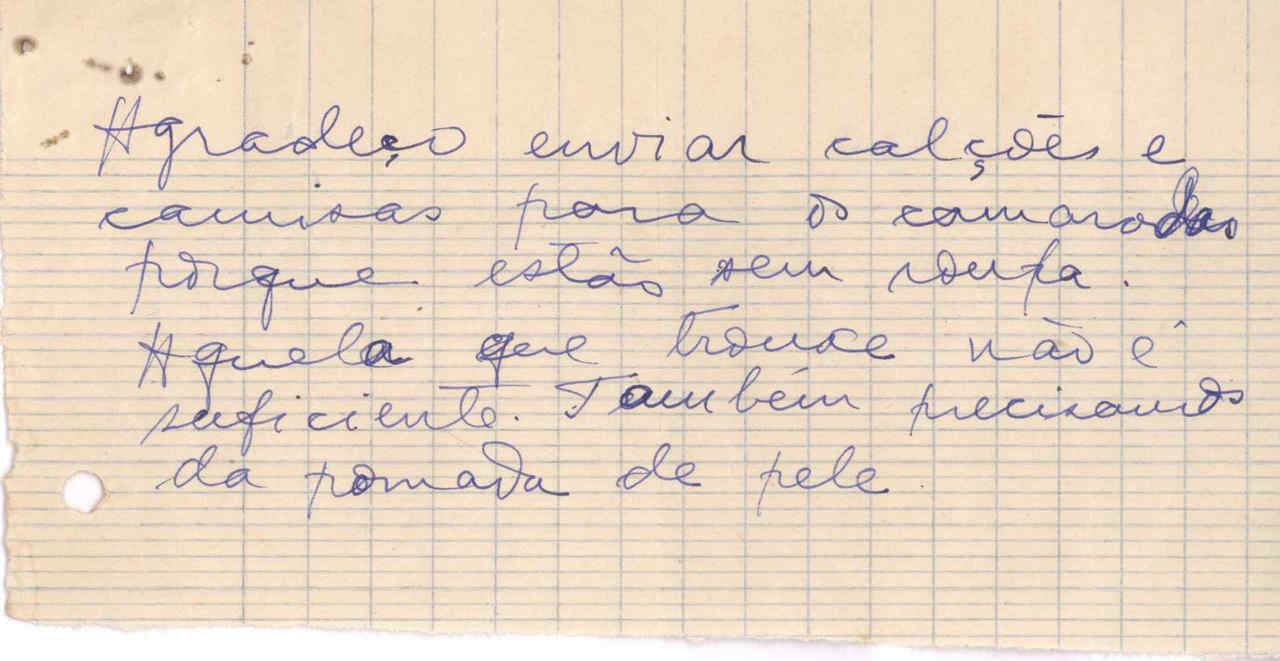 Agradeço enviar calções e
camisas para os camaradas
porque estão sem roupa.
Aquela que trouxe não é
suficiente. Também precisamos
da pomada de pele.